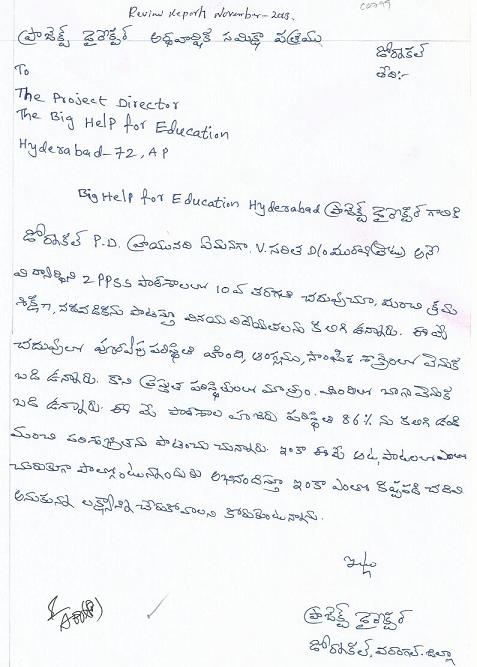 Review Report November-2008.
ప్రాజెక్ట్ డైరెక్టర్ అర్ధవార్షిక సమీక్షా పత్రము
డోర్నకల్
తేది:-
To
The Project Director
The Big Help for Education
Hyderabad-72, AP
Big Help for Education Hyderabad ప్రాజెక్ట్ డైరెక్టర్ గారికి
డోర్నకల్ P.D. వ్రాయునది ఏమనగా. V. సరిత D/o అనే
విద్యార్థిని ZPPSS పాఠశాలలో 10వ తరగతి చదువుచూ, మంచి క్రమ
శిక్షణ, నడవడికను పాటిస్తూ వినయ విధేయతలను కలిగి ఉన్నారు. ఈమె
చదువులో పూర్వపు పరిస్థితి హింది, ఆంగ్లము, సాంఘిక శాస్త్రంలో వెనుక
బడి ఉన్నారు. కాని ప్రస్తుత పరిస్థితులలో మాత్రం. హిందిలో బాగ వెనుక
బడి ఉన్నారు. ఈ మె పాఠశాల హాజరు పరిస్థితి 86% ను కలిగి ఉండి
మంచి పరిశుభ్రతను పాటించు చున్నారు. ఇంకా ఈమె ఆట, పాటలలో ఎంతో
చురుకుగా పాల్గొంటున్నందుకు అభినందిస్తూ ఇంకా ఎంతో కష్టపడి చదివి
అనుకున్న లక్ష్యాన్ని చేరుకోవాలని కోరుకుంటున్నాను.
ఇట్లు
ప్రాజెక్ట్ డైరెక్టర్
డోర్నకల్, వరంగల్ జిల్లా